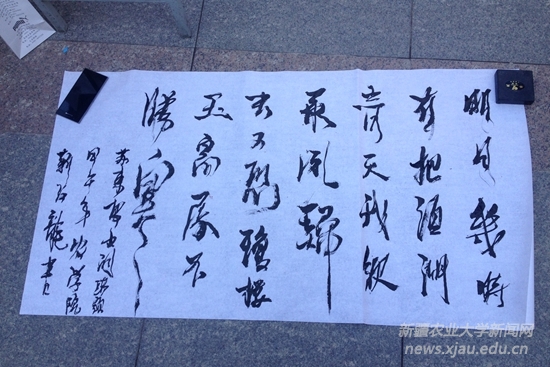 明月幾時
有把酒問
青天我欲
乘風歸
去又恐瓊樓
玉高處不
勝寒
蘇東坡詞
甲午年農學院
龍書
新疆农业大学新闻网
news.xjau.edu.cn